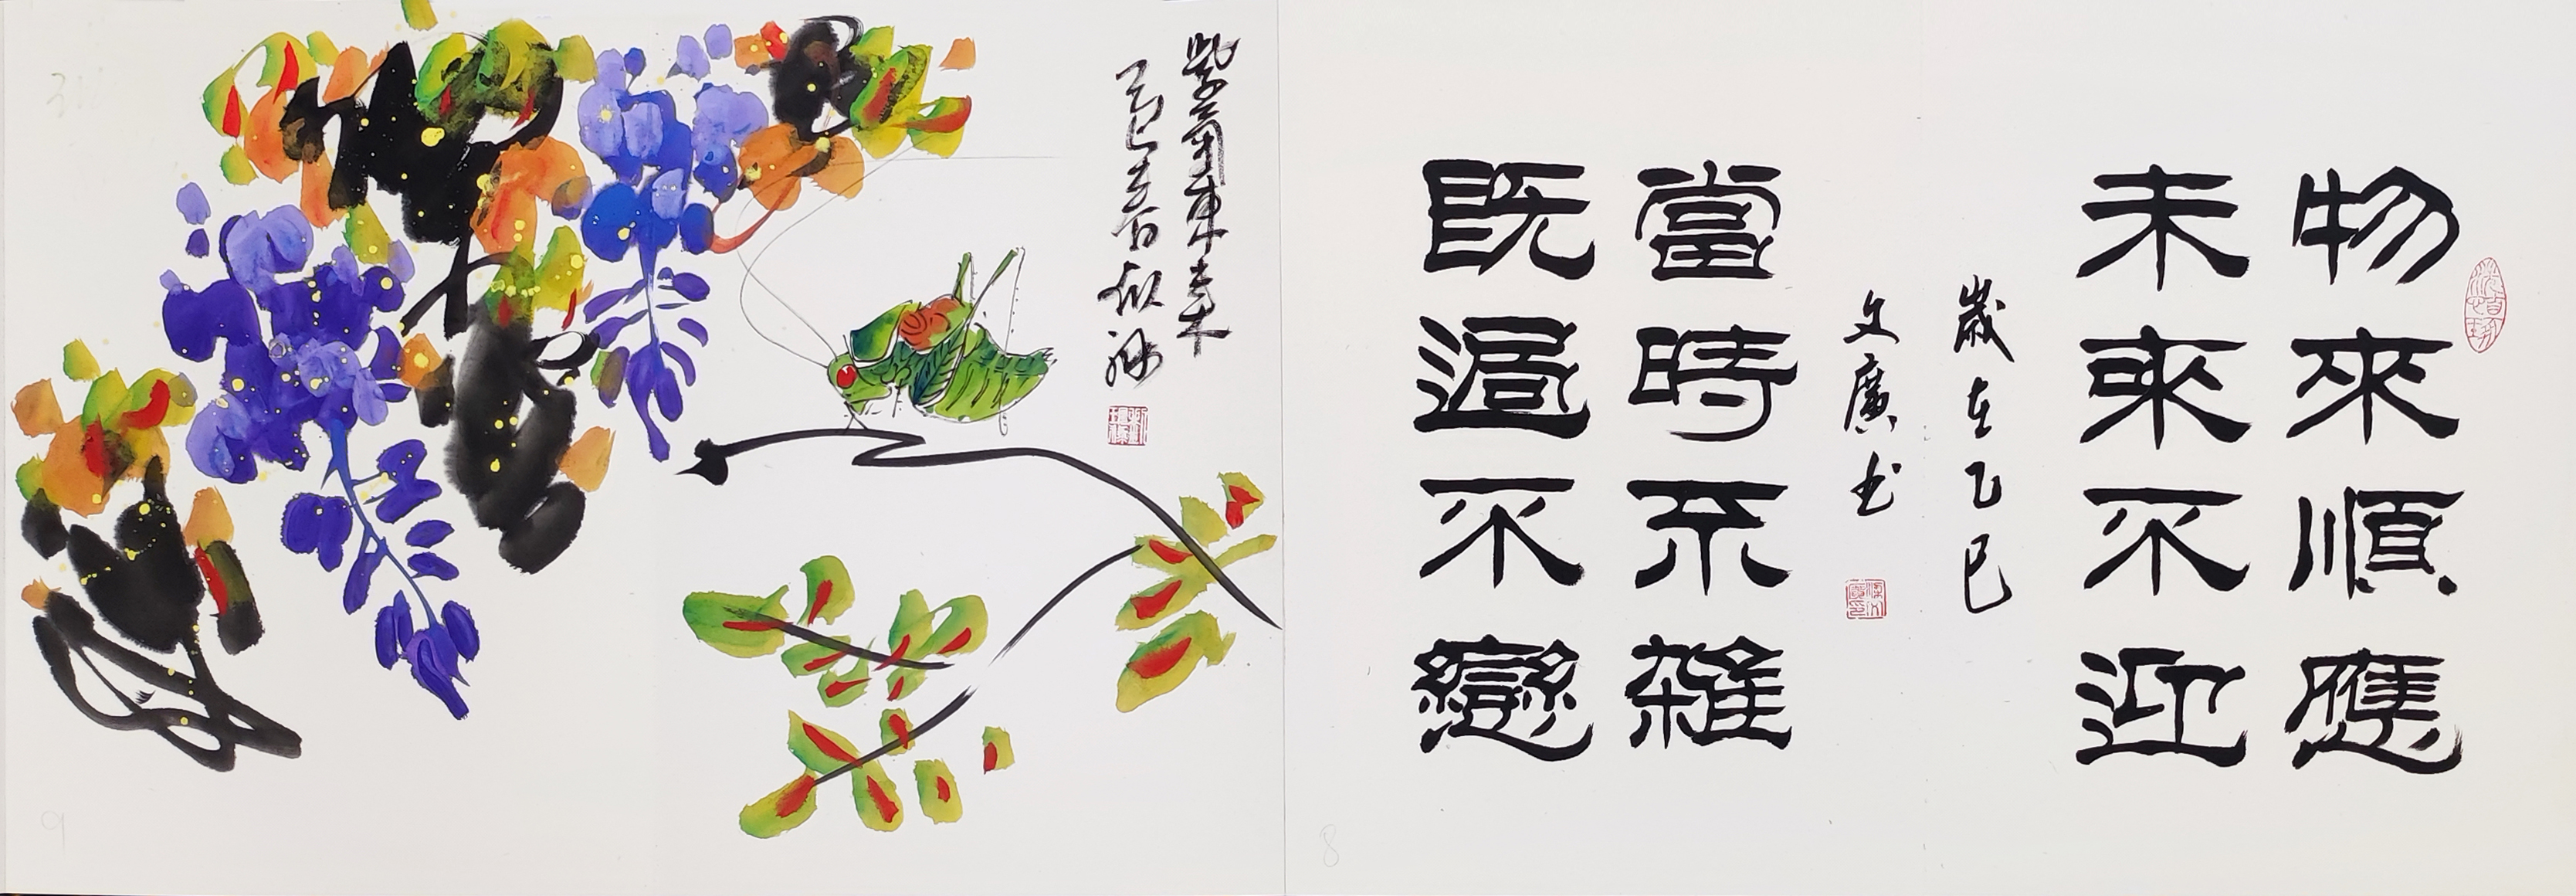 物來順應
未來不迎
歲在乙巳
文廣书
當時不雜
既過不戀
8
紫氣東来
乙巳春
9